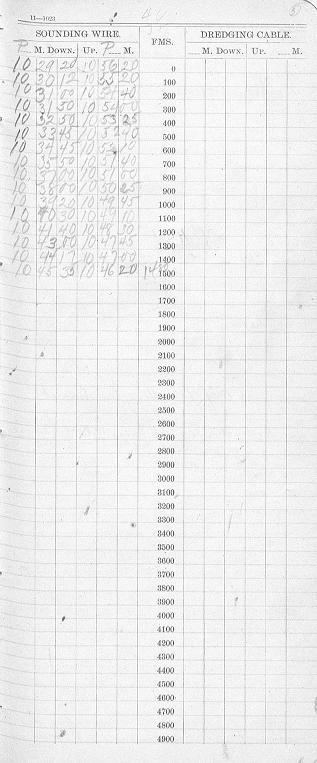 11—5023
SOUNDING WIRE. FMS. DREDGING CABLE.
P. M. DOWN. UP. P. M. M. DOWN. UP. M.
10 29 20 10 56 20 0
10 30 12 10 55 20 100
10 31 00 10 54 40 200
10 31 50 10 54 00 300
10 32 50 10 53 25 400
10 33 45 10 52 40 500
10 34 45 10 52 10 600
10 35 50 10 51 40 700
10 37 00 10 51 00 800
10 38 00 10 50 25 900
10 39 20 10 49 45 1000
10 40 30 10 49 10 1100
10 41 40 10 48 30 1200
10 43 00 10 47 45 1300
10 44 17 10 47 00 1400
10 45 35 10 46 20 1500
1600
1700
1800
1900
2000
2100
2200
2300
2400
2500
2600
2700
2800
2900
3000
3100
3200
3300
3400
3500
3600
3700
3800
3900
4000
4100
4200
4300
4400
4500
4600
4700
4800
4900